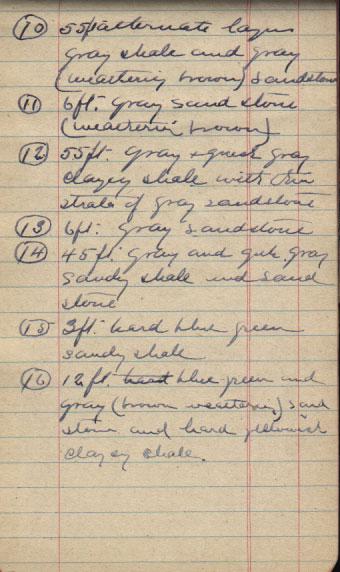 (10) 55ft alternate layers
gray shale and gray
(weathering brown) sandstone
(11) 6ft. gray sand stone
(weatherin' brown)
(12) 55ft. gray + gnish gray
clayey shale with thin
strata of gray sandstone
(13) 6ft. gray sandstone
(14) 45ft. gray and gnh. gray
sandy shale and sand
stone
(15) 3ft. hard blue green
sandy shale
(16) 12ft. hard blue green and
gray (brown weatherin.) sand
stone and hard yellowish
clayey shale.